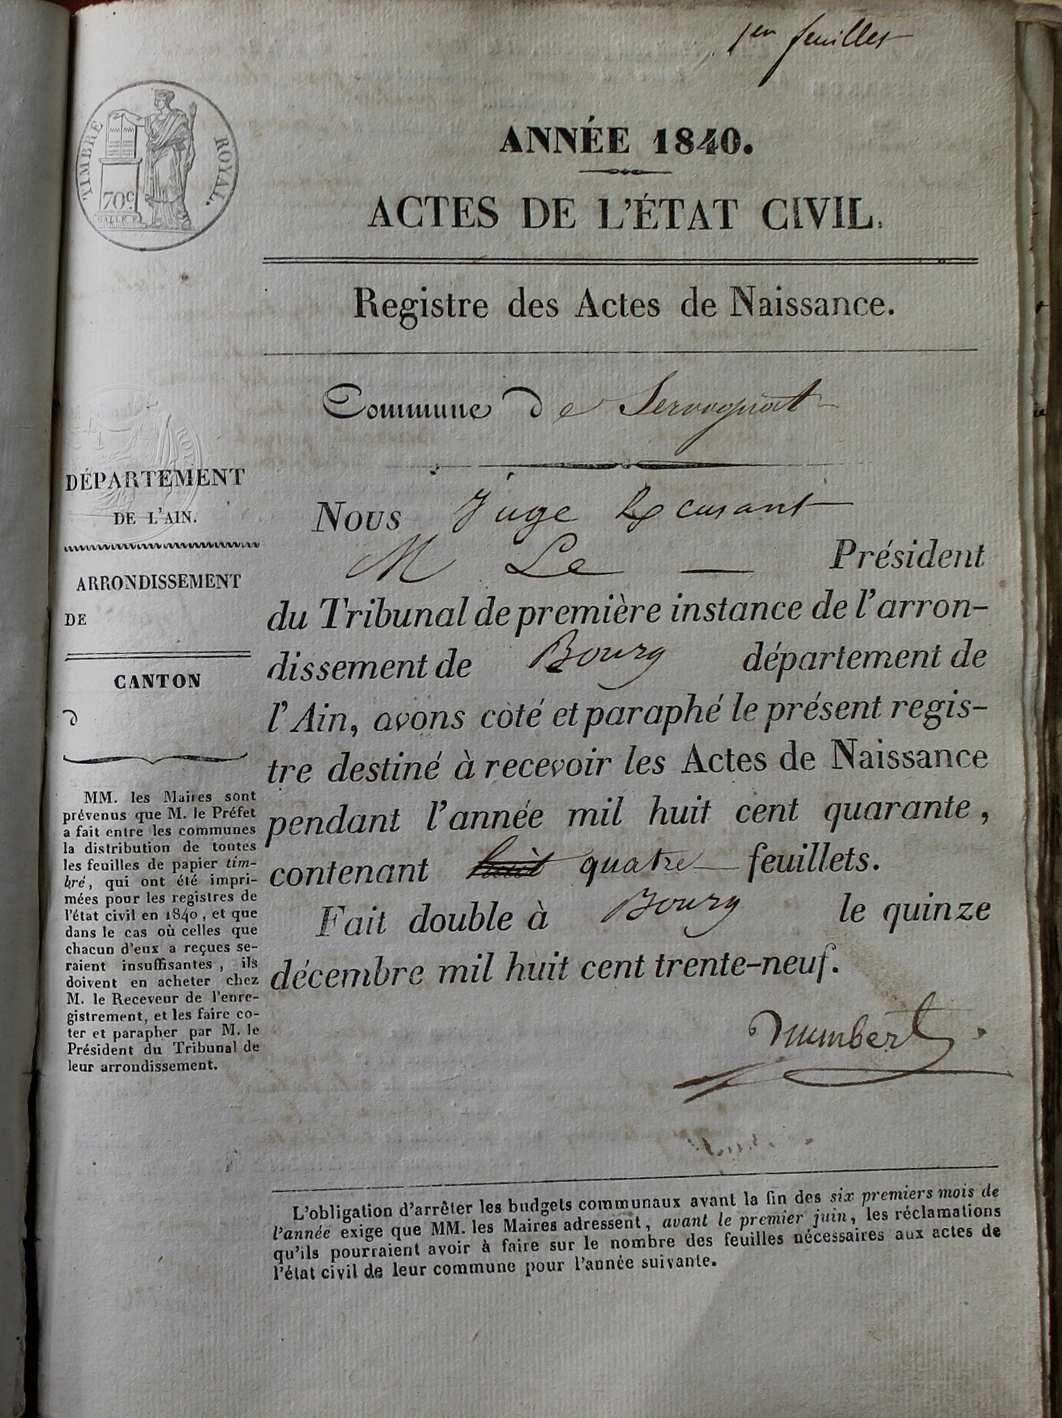 1er feuillet
TIMBRE ROYAL.
70c
ANNÉE 1840.
ACTES DE L'ÉTAT CIVIL.
Registre des Actes de Naissance.
Commune de
DÉPARTEMENT
DE L'AIN.
ARRONDISSEMENT
DE
CANTON
d
MM. les Maires sont
prévenus que M. le Préfet
a fait entre les communes
la distribution de toutes
les feuilles de papier tim-
bré, qui ont été impri-
mées pour les registres de
l'état civil en 1840, et que
dans le cas où celles que
chacun d'eux a reçues se-
raient insuffisantes, ils
doivent en acheter chez
M. le Receveur de l'enre-
gistrement, et les faire co-
ter et parapher par M. le
Président du Tribunal de
leur arrondissement.
Nous Juge
M Le — Président
du Tribunal de première instance de l'arron-
dissement de Bourg département de
l'Ain, avons coté et paraphé le présent regis-
tre destiné à recevoir les Actes de Naissance
pendant l'année mil huit cent quarante,
contenant huit quatre feuillets.
Fait double à Bourg le quinze
décembre mil huit cent trente-neuf.
L'obligation d'arrêter les budgets communaux avant la fin des six premiers mois de
l'année exige que MM. les Maires adressent, avant le premier juin, les réclamations
qu'ils pourraient avoir à faire sur le nombre des feuilles nécessaires aux actes de
l'état civil de leur commune pour l'année suivante.